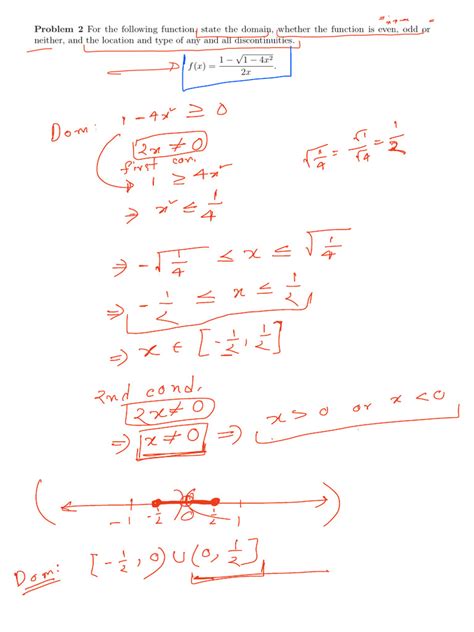 Problem 2 For the following function, state the domain, whether the function is even, odd or
neither, and the location and type of any and all discontinuities.
f(x) = (1 − √(1 − 4x²)) / 2x.
Dom: 1 − 4x² ≥ 0
2x ≠ 0
first con.
1 ≥ 4x²
⇒ x² ≤ 1/4
√(1/4) = √1/√4 = 1/2
⇒ −√(1/4) ≤ x ≤ √(1/4)
⇒ −1/2 ≤ x ≤ 1/2
⇒ x ∈ [−1/2, 1/2]
2nd cond.
2x ≠ 0
⇒ x ≠ 0 ⇒ x > 0 or x < 0
−1 −1/2 0 1/2 1
Dom: [−1/2, 0) ∪ (0, 1/2]